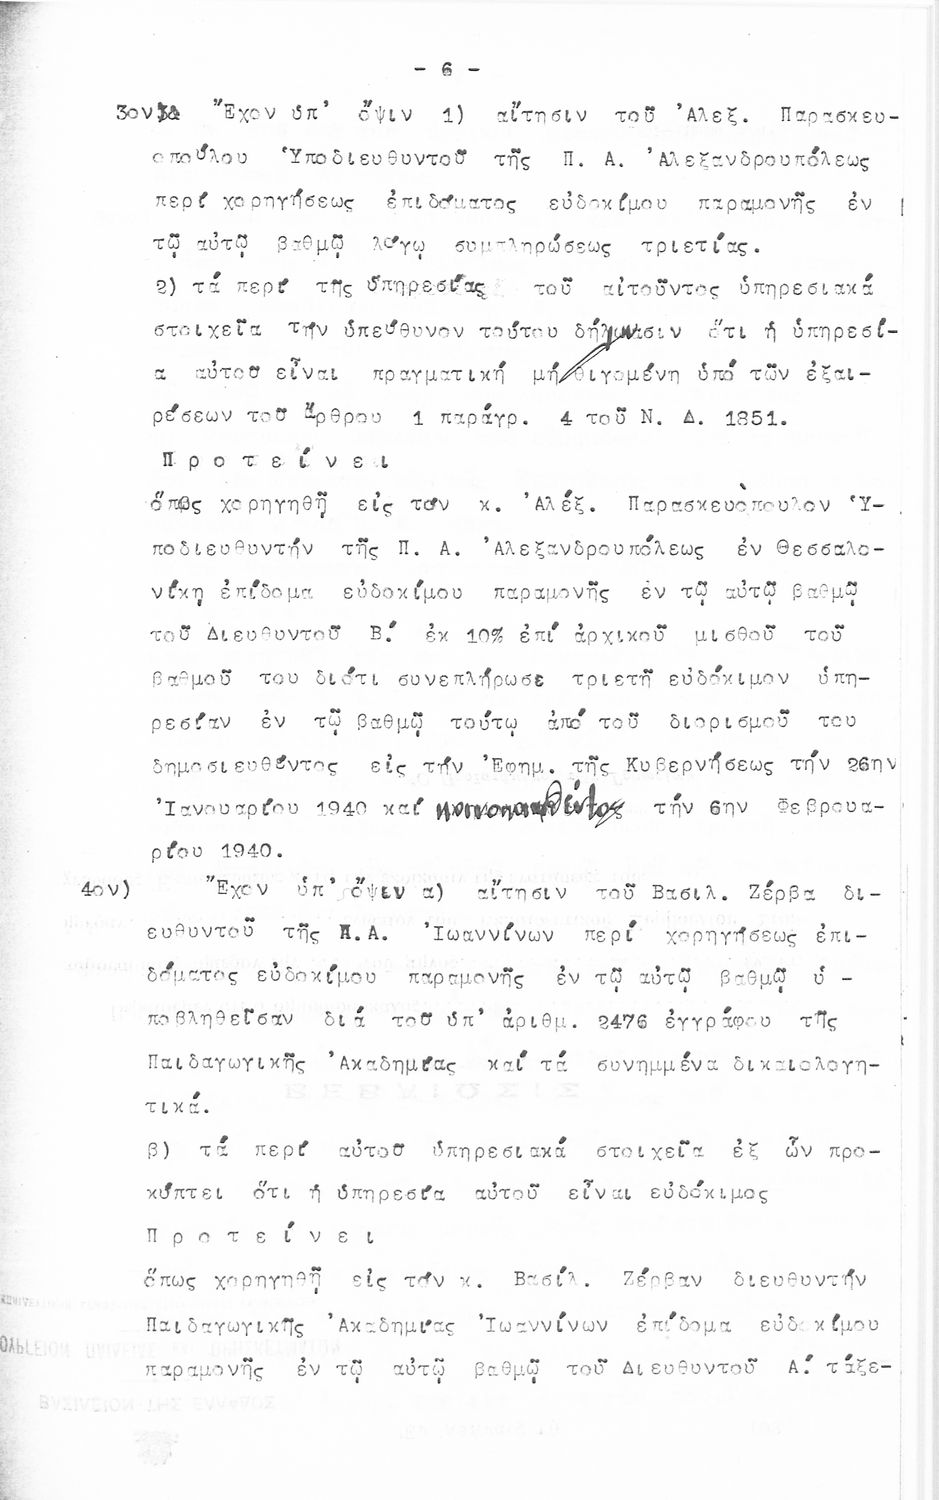 - 6 -
3ον) Ἔχον ὑπ' ὄψιν 1) αἴτησιν τοῦ Ἀλεξ. Παρασκευ-
οπούλου Ὑποδιευθυντοῦ τῆς Π. Α. Ἀλεξανδρουπόλεως
περί χορηγήσεως ἐπιδόματος εὐδοκίμου παραμονῆς ἐν
τῷ αὐτῷ βαθμῷ λόγῳ συμπληρώσεως τριετίας.
2) τά περί τῆς ὑπηρεσίας τοῦ αἰτοῦντος ὑπηρεσιακά
στοιχεῖα τήν ὑπεύθυνον τούτου δήλωσιν ὅτι ἡ ὑπηρεσί-
α αὐτοῦ εἶναι πραγματική μή θιγομένη ὑπό τῶν ἐξαι-
ρέσεων τοῦ ἄρθρου 1 παράγρ. 4 τοῦ Ν. Δ. 1851.
Π ρ ο τ ε ί ν ε ι
ὅπως χορηγηθῇ εἰς τόν κ. Ἀλέξ. Παρασκευόπουλον Ὑ-
ποδιευθυντήν τῆς Π. Α. Ἀλεξανδρουπόλεως ἐν Θεσσαλο-
νίκῃ ἐπίδομα εὐδοκίμου παραμονῆς ἐν τῷ αὐτῷ βαθμῷ
τοῦ Διευθυντοῦ Β.΄ ἐκ 10% ἐπί ἀρχικοῦ μισθοῦ τοῦ
βαθμοῦ του διότι συνεπλήρωσε τριετῆ εὐδόκιμον ὑπη-
ρεσίαν ἐν τῷ βαθμῷ τούτῳ ἀπό τοῦ διορισμοῦ του
δημοσιευθέντος εἰς τήν Ἐφημ. τῆς Κυβερνήσεως τήν 26ην
Ἰανουαρίου 1940 καί κοινοποιηθέντος τήν 6ην Φεβρουα-
ρίου 1940.
4ον) Ἔχον ὑπ' ὄψιν α) αἴτησιν τοῦ Βασιλ. Ζέρβα δι-
ευθυντοῦ τῆς Π.Α. Ἰωαννίνων περί χορηγήσεως ἐπι-
δόματος εὐδοκίμου παραμονῆς ἐν τῷ αὐτῷ βαθμῷ ὑ -
ποβληθεῖσαν διά τοῦ ὑπ' ἀριθμ. 2476 ἐγγράφου τῆς
Παιδαγωγικῆς Ἀκαδημίας καί τά συνημμένα δικαιολογη-
τικά.
β) τά περί αὐτοῦ ὑπηρεσιακά στοιχεῖα ἐξ ὧν προ-
κύπτει ὅτι ἡ ὑπηρεσία αὐτοῦ εἶναι εὐδόκιμος
Π ρ ο τ ε ί ν ε ι
ὅπως χορηγηθῇ εἰς τόν κ. Βασίλ. Ζέρβαν διευθυντήν
Παιδαγωγικῆς Ἀκαδημίας Ἰωαννίνων ἐπίδομα εὐδοκίμου
παραμονῆς ἐν τῷ αὐτῷ βαθμῷ τοῦ Διευθυντοῦ Α.΄ τάξε-